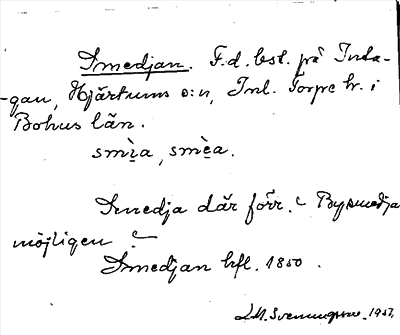 Smedjan. F.d. lst. på Inta-
-gan, Hjärtums s:n, Inl. Torpe hr. i
Bohus län.
smìa, smèa.
Smedja där förr. Bysmedja
möjligen?
Smedjan hfl. 1850.
Svenningsson. 1937.